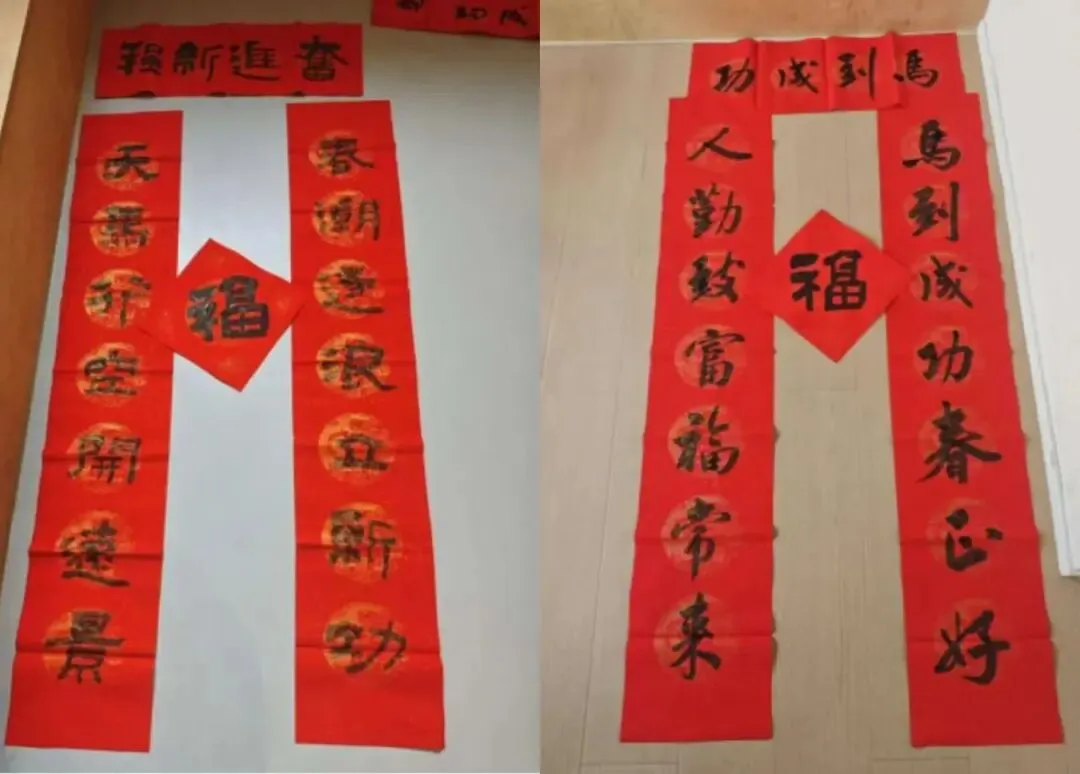 奮進新程
春潮逐浪立新功
天馬行空開遠景
福
馬到成功
馬到成功春正好
人勤致富福常來
福